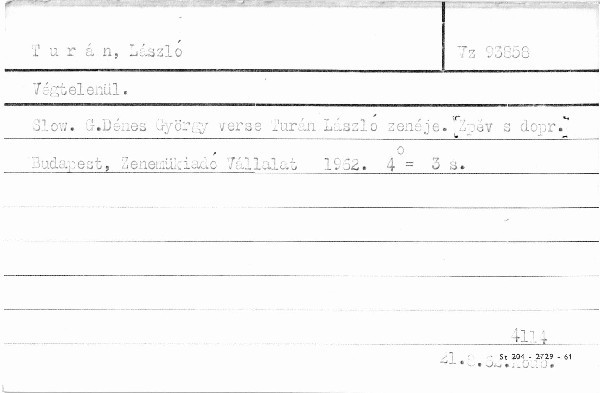 T u r á n, László
Vz 93858
Végtelenül.
Slow. G.Dénes György verse Turán László zenéje. [Zpěv s dopr.]
Budapest, Zenemükiadó Vállalat 1962. 4° = 3 s.
4114
St 204 - 2729 - 61